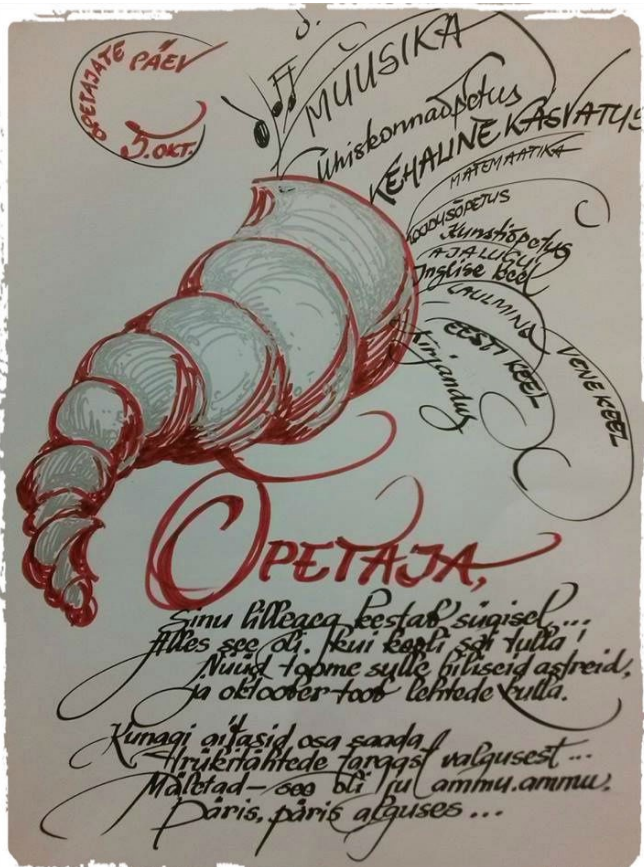 ÕPETAJATE PÄEV
5. OKT.
MUUSIKA
Ühiskonnaõpetus
KEHALINE KASVATUS
MATEMAATIKA
LOODUSÕPETUS
Kunstiõpetus
AJALUGU
Inglise keel
LAULMINE
EESTI KEEL
VENE KEEL
Kirjandus
ÕPETAJA,
Sinu lilleaeg kestab sügisel...
Alles see oli, kui kooli sai tulla!
Nüüd toome sulle hiliseid astreid,
ja oktoober toob lehtede kulla.
Kunagi aitasid osa saada
trükitähtede targast valgusest...
Mäletad – see oli ju ammu, ammu,
päris, päris alguses...